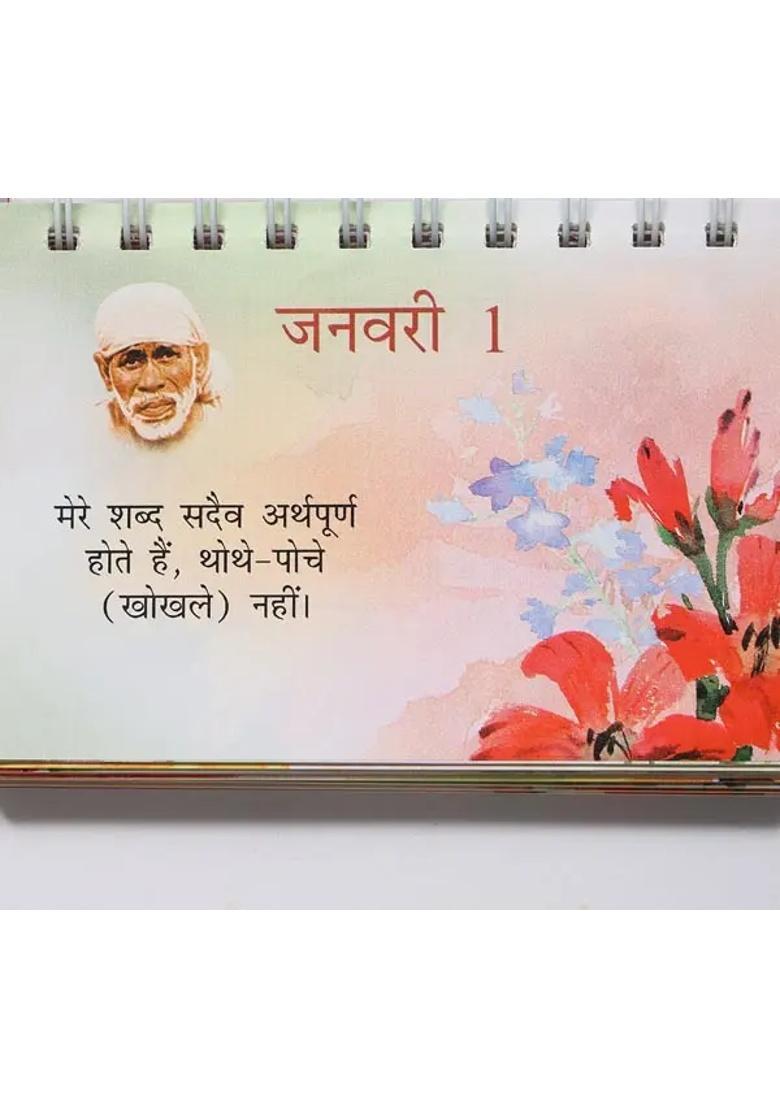 जनवरी 1
मेरे शब्द सदैव अर्थपूर्ण
होते हैं, थोथे-पोचे
(खोखले) नहीं।